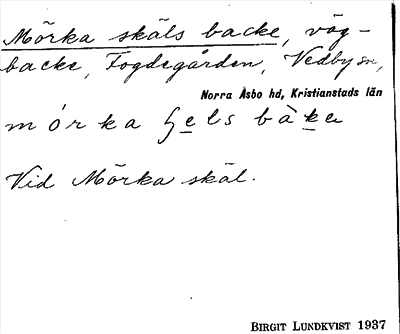 Mörka skäls backe, väg-
backe, Fogdegården, Vedby sn,
Norra Åsbo hd, Kristianstads län
Vid Mörka skäl.
BIRGIT LUNDKVIST 1937